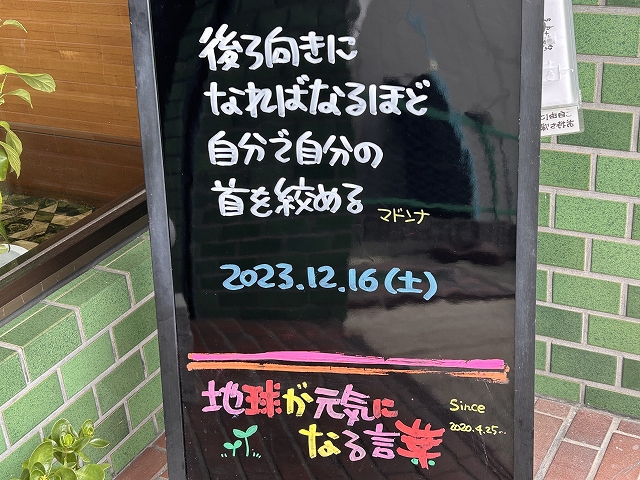 後ろ向きに
なればなるほど
自分で自分の
首を絞める
マドンナ
2023.12.16(土)
地球が元気に
なる言葉
Since
2020.4.25..
ご自由に
お持ち帰